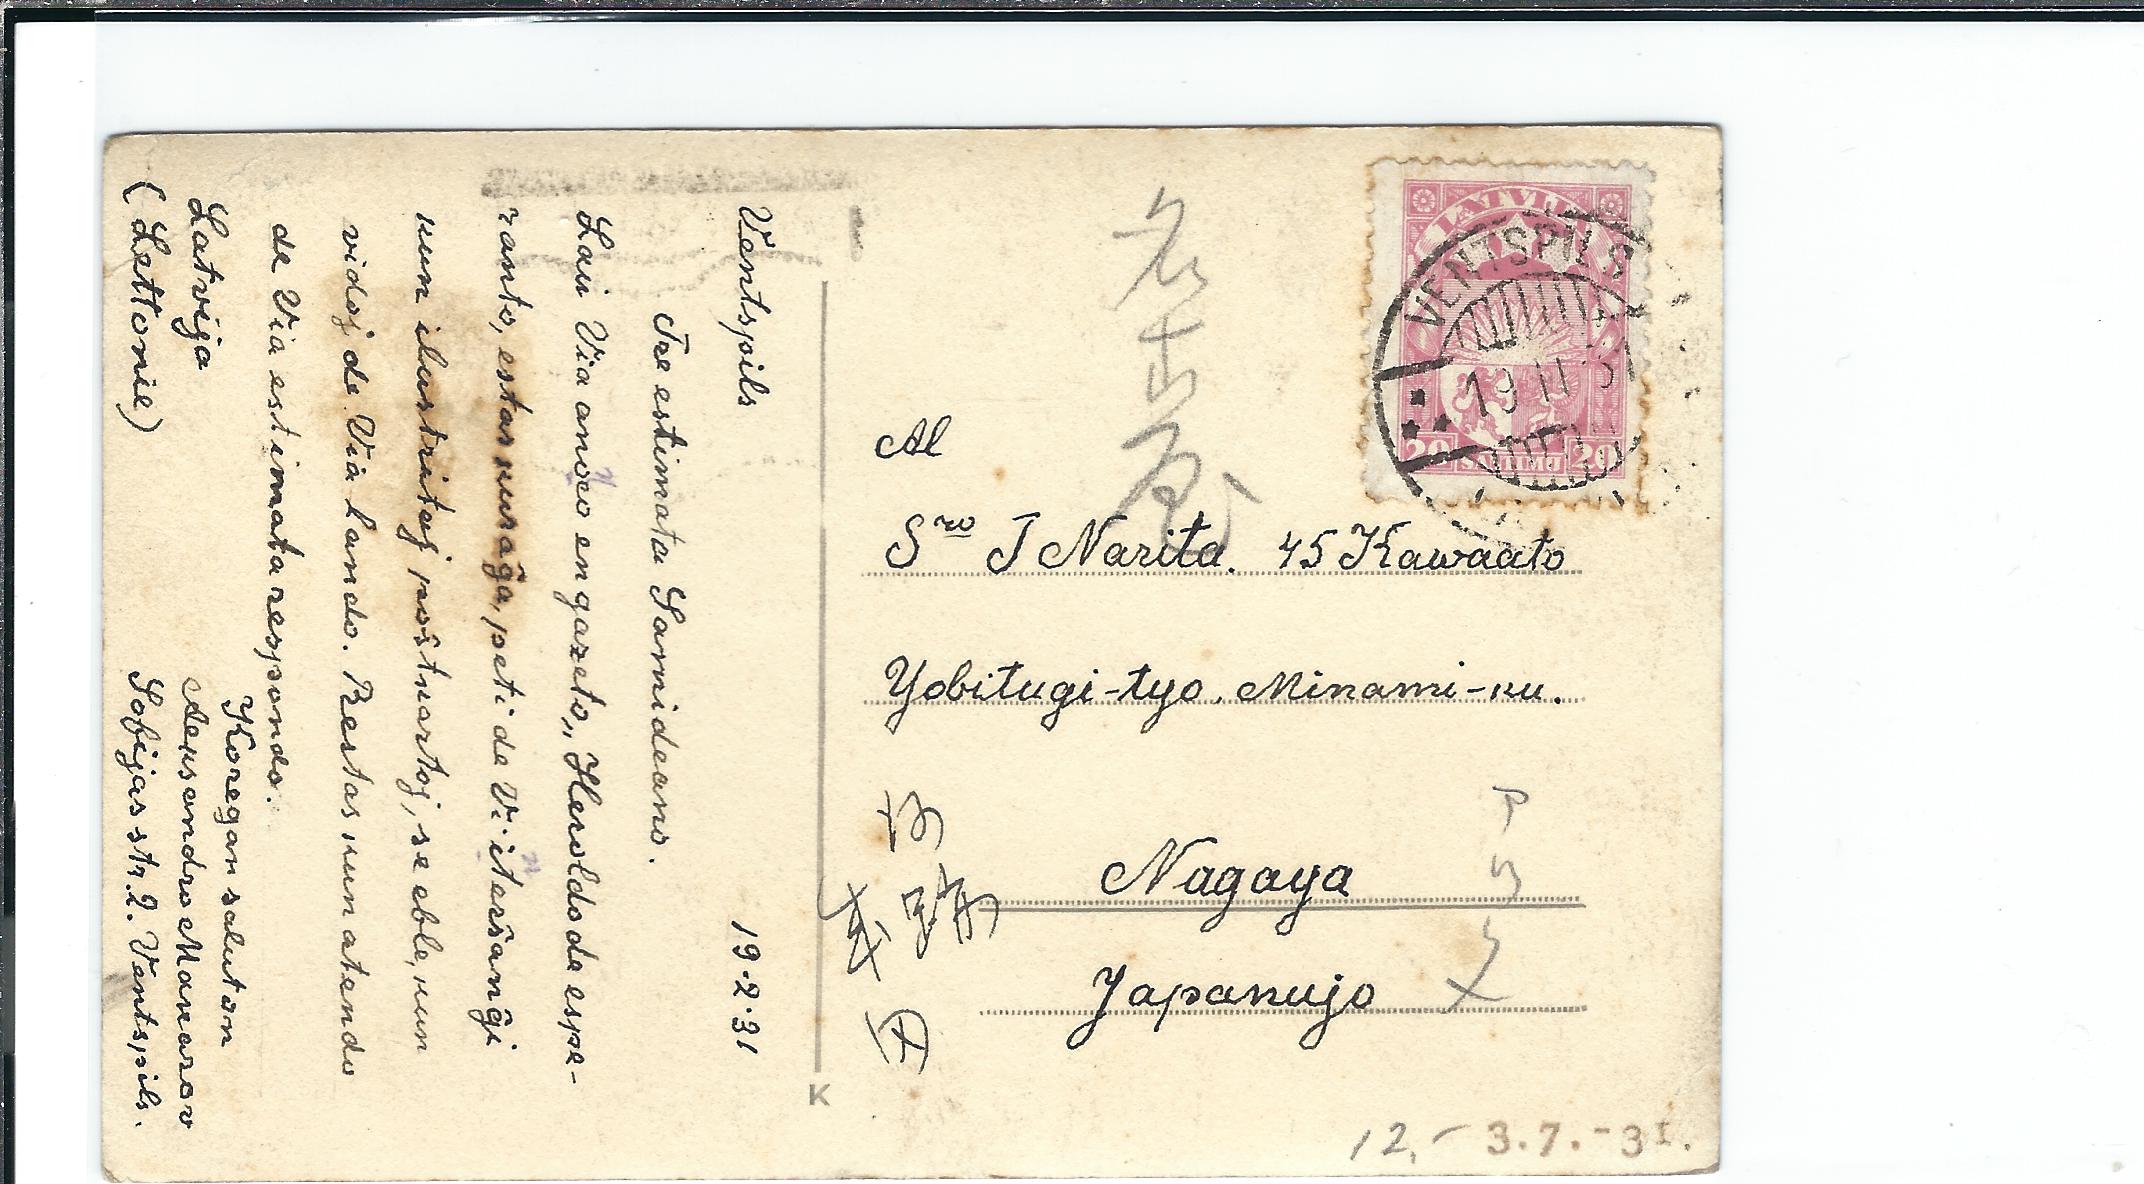 Ventspils 19.2.31
Tre estimata Samideano.
Laŭ Via anonco en gazeto „Heroldo de espe-
ranto, estas kuraĝa, peti de Vi iterŝanĝi
kun ilustritaj poŝtkartoj, se eble, kun
vidoj de Via lando. Restas kun atendo
de Via estimata respondo.
Koregan saluton
Latvija
(Lettonie)
Aleksandro
Sofijas str. 2. Ventspils.
K
LATVIJA
20 SANTIMU 20
VENTSPILS
19 II 31
Al
Sro J Narita. 45 Kawaato
Yobitugi-tyo, Minami-ku.
Nagaya
Japanujo
名古屋
12.- 3.7.-31.